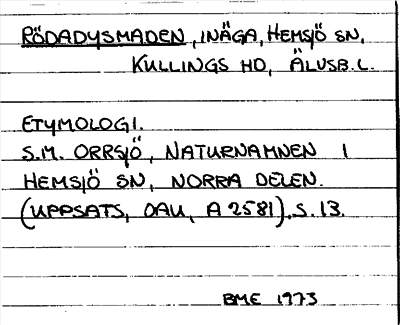 RÖDADYSMADEN, INÄGA, HEMSJÖ SN,
KULLINGS HD, ÄLVSB. L.
ETYMOLOGI.
S.M. ORRSJÖ, NATURNAMNEN I
HEMSJÖ SN, NORRA DELEN.
(UPPSATS, DAU, A 2581), S. 13.
BME 1973